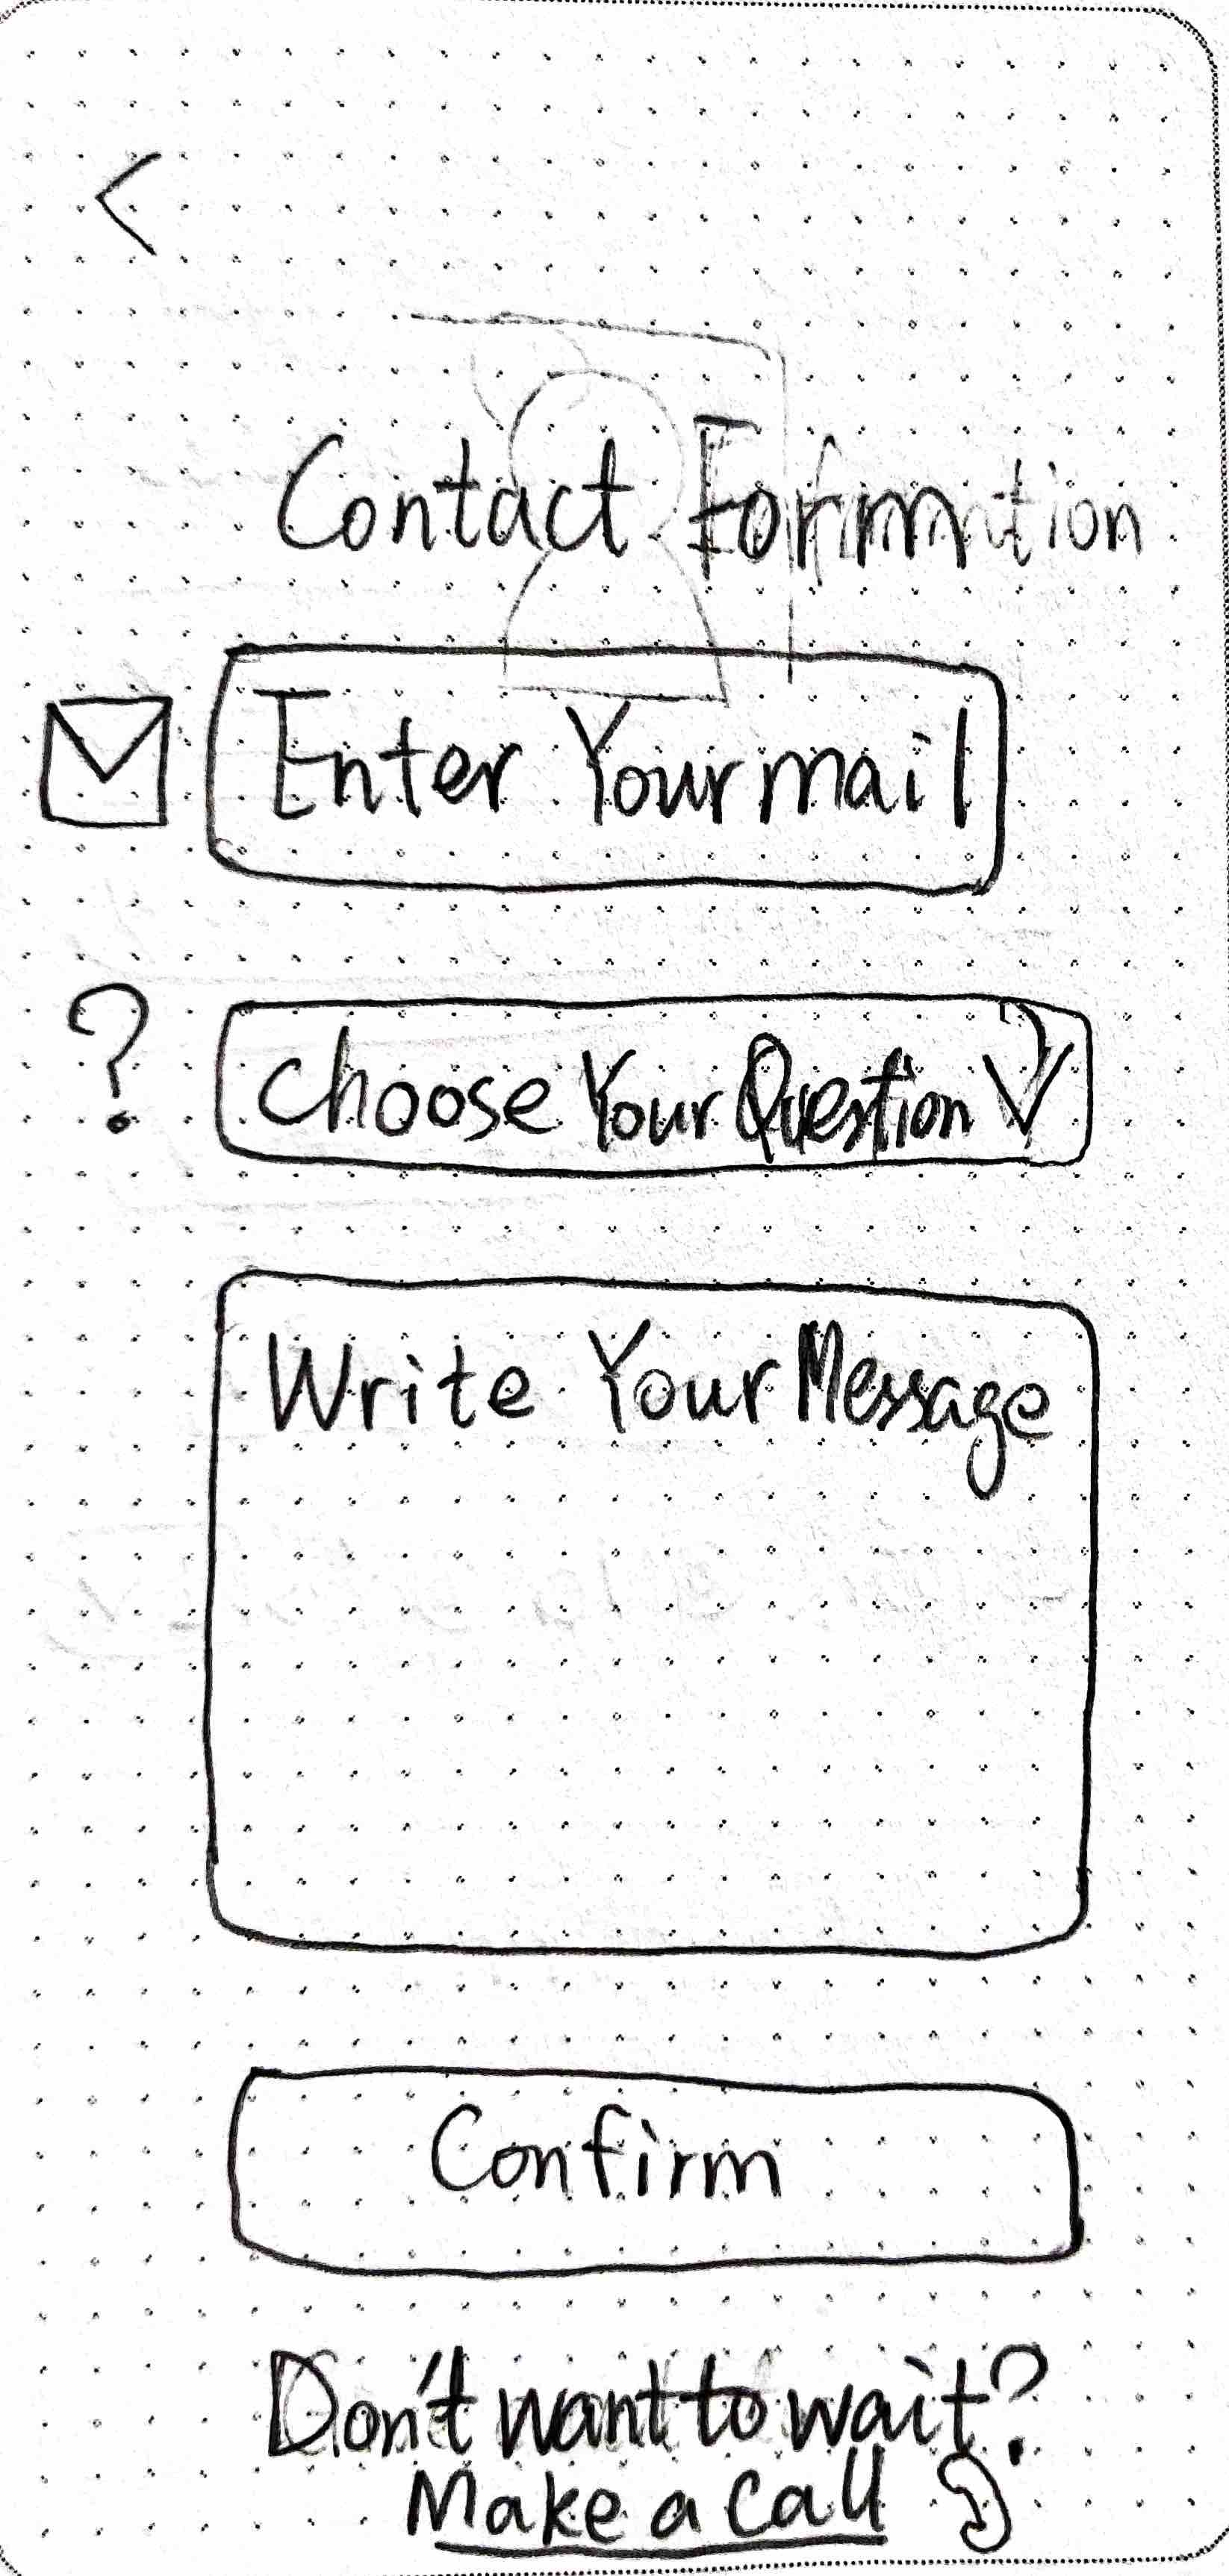 <
Contact Form
Enter Your mail
?
Choose Your Question
Write Your Message
Confirm
Don't want to wait?
Make a call